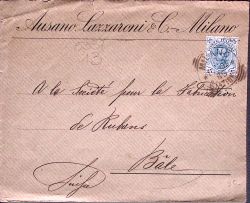 Ausano Lazzaroni & C. Milano
A la Société pour la Fabrication
de Rubans
Bâle
Suisse